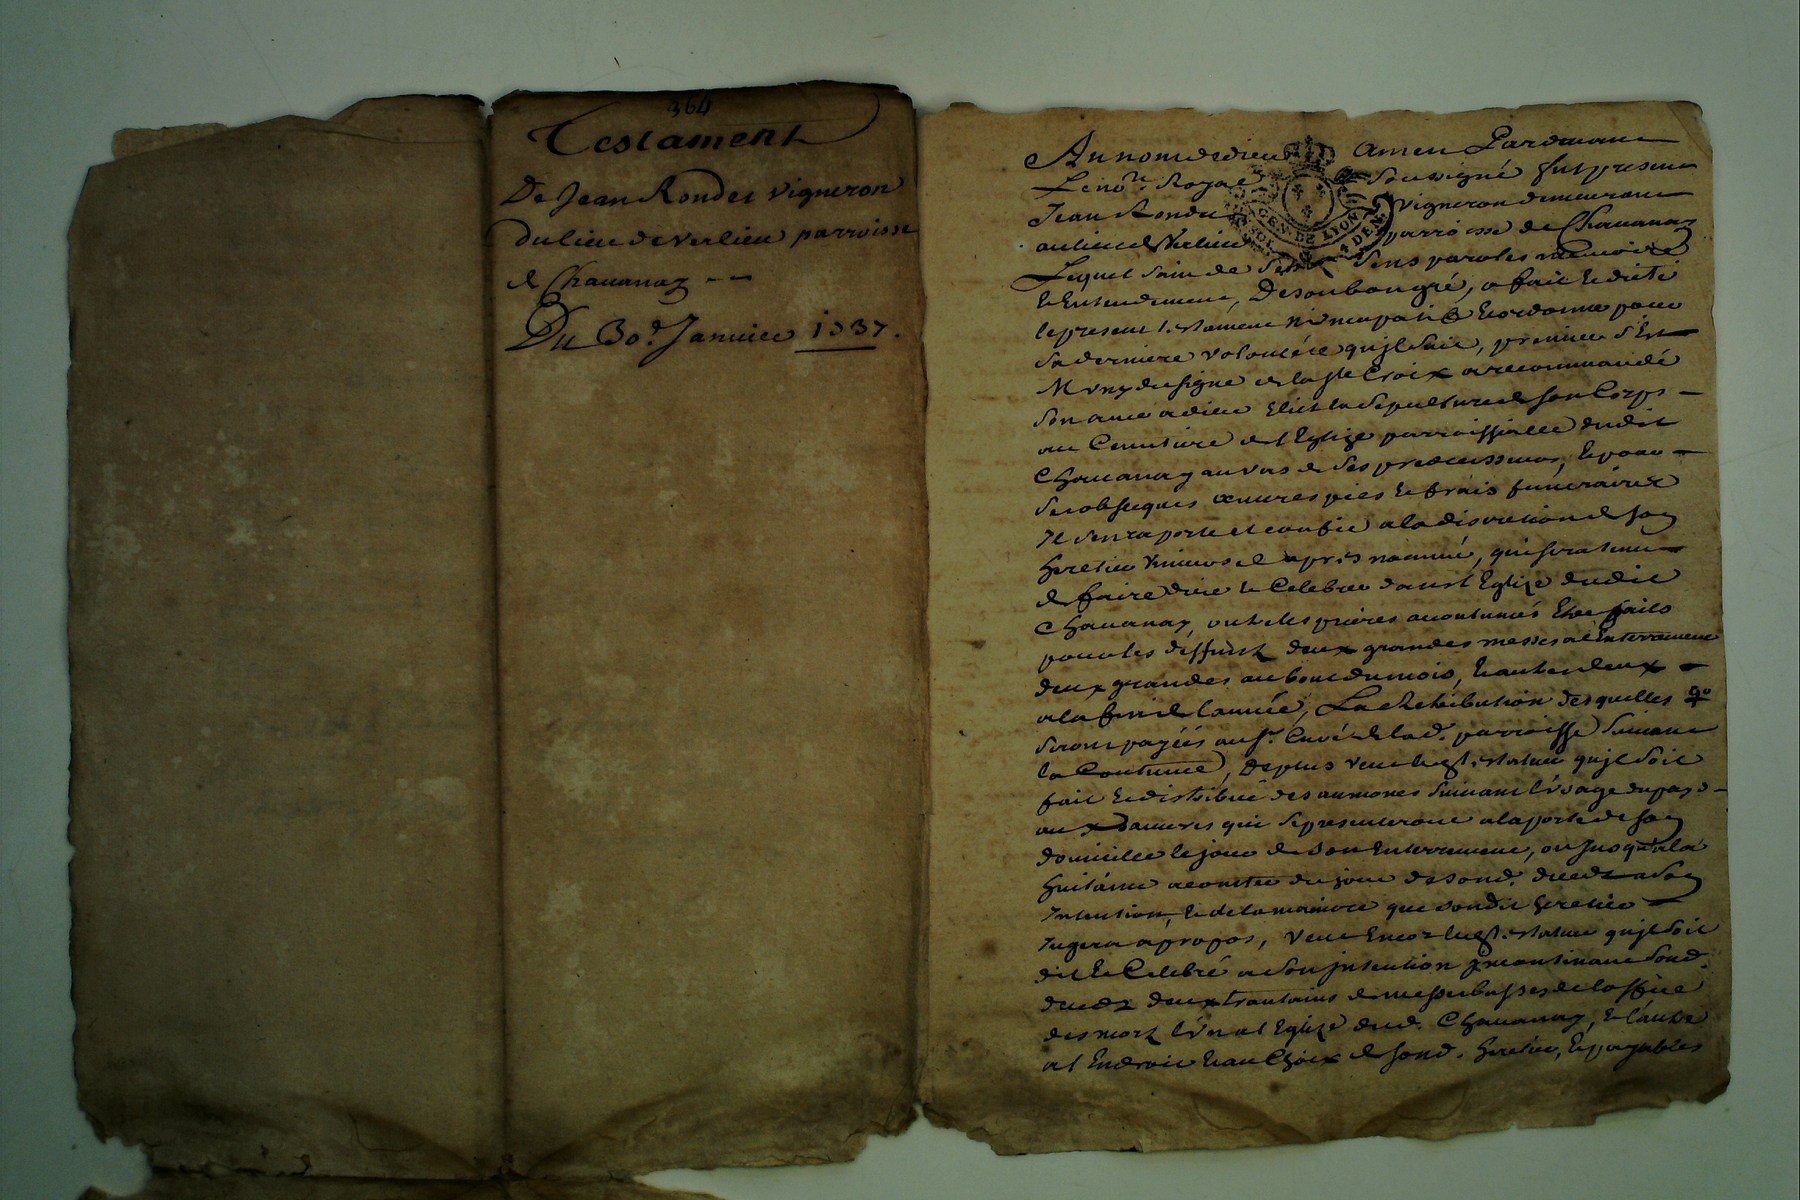 364
Testament
De Jean Rondet vigneron
du lieu de verlieu parroisse
de Chauanay --
Du 30e. Januier 1737.
Au nom de dieu amen Pardeuant
Le nore. Royal soussigné fut present
Jean Rondet vigneron demeurant
au lieu de Verlieu parroisse de Chauanay
GEN. DE LYON 4 DEN.
Lequel sain de ses sens paroles memoire
et Entendement, De son bon gré, a fait et dicté
le present testament nuncupatif et ordonnance pour
sa derniere volontée qu'jl suit, premier s'Est
Muny du signe de la ste Croix a recommandé
son ame a dieu Elit la sepulture de son Corps
au Cemetiere de l'Eglize parroissialle dudit
Chauanay au vas de ses predecesseurs, et pour
ses obseques œuures pies et frais funeraires
Il s'en raporte et confie a la discretion de son
heretier vniuersel apres nommé, qui sera tenu
de faire dire et Celebrer dans l'Eglize dudit
Chauanay, outre les prieres acoutumés Etre faits
pour les deffunts deux grandes messes a l'Enterrement
deux grandes au bout du mois, et autres deux
a la fin de l'année, La Retribution desquelles
seront payées au sr. Curé de la de. parroisse suiuant
la Coutume, De plus veut le dt. testateur qu'jl soit
fait et distribué des aumones suiuant l'vsage du pays
aux pauures qui se presenteront a la porte de son
domicille le jour de son Enterrement, ou jusqu'a la
huitaine a compter du jour de sond. deceds a son
Intention, et de la maniere que sondit heretier
Jugera a propos, Veut Encor le dt. testateur qu'jl soit
dit et Celebré a son jntention jncontinant sond.
deceds deux trantains de messes basses de l'office
des morts l'vn a l'Eglize dud. Chauanay, et l'autre
a l'Endroit et au Choix de sond. heretier, et payables